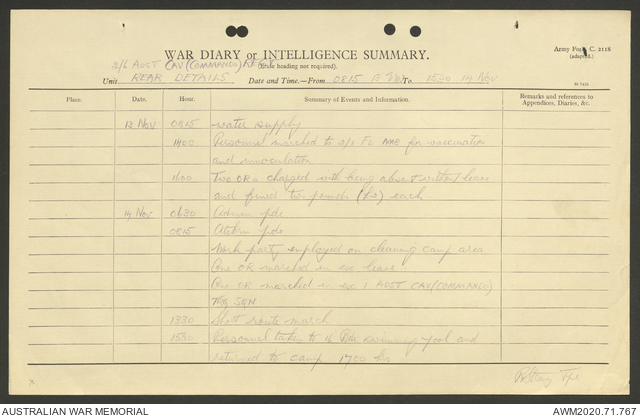 WAR DIARY or INTELLIGENCE SUMMARY.
Army Form C. 2118
(adapted.)
2/6 AUST CAV (COMMANDO) REGT
(Erase heading not required).
Unit REAR DETAILS Date and Time.—From 0815 13 Nov To 1530 14 Nov
Place. Date. Hour. Summary of Events and Information. Remarks and references to Appendices, Diaries, &c.
13 Nov 0815 water supply
1400 Personnel marched to Fd Amb for vaccination
and innoculation
1600 Two ORs charged with being absent without leave
and fined two pounds (£2) each
14 Nov 0630 Admin pde
0815 pde
Work party employed on cleaning camp area
One OR marched in ex leave
One OR marched in ex 1 AUST CAV (COMMANDO)
Trg SQN
1330 Short route march
1530 Personnel taken to swimming pool and
returned to camp 1700 hrs
AUSTRALIAN WAR MEMORIAL
AWM2020.71.767